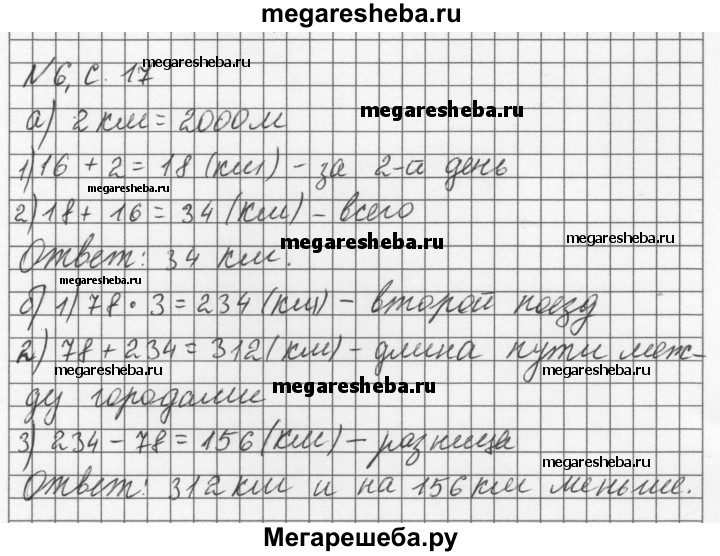 megaresheba.ru
№6, с. 17
megaresheba.ru
а) 2 км = 2000м
megaresheba.ru
1) 16 + 2 = 18 (км) – за 2-й день
megaresheba.ru
2) 18 + 16 = 34 (км) – всего
Ответ: 34 км.
megaresheba.ru
megaresheba.ru
megaresheba.ru
б) 1) 78 · 3 = 234 (км) – второй поезд
2) 78 + 234 = 312 (км) – длина пути меж-
megaresheba.ru
megaresheba.ru
ду городами
megaresheba.ru
3) 234 – 78 = 156 (км) – разница
megaresheba.ru
Ответ: 312 км и на 156 км меньше.
Мегарешеба.ру